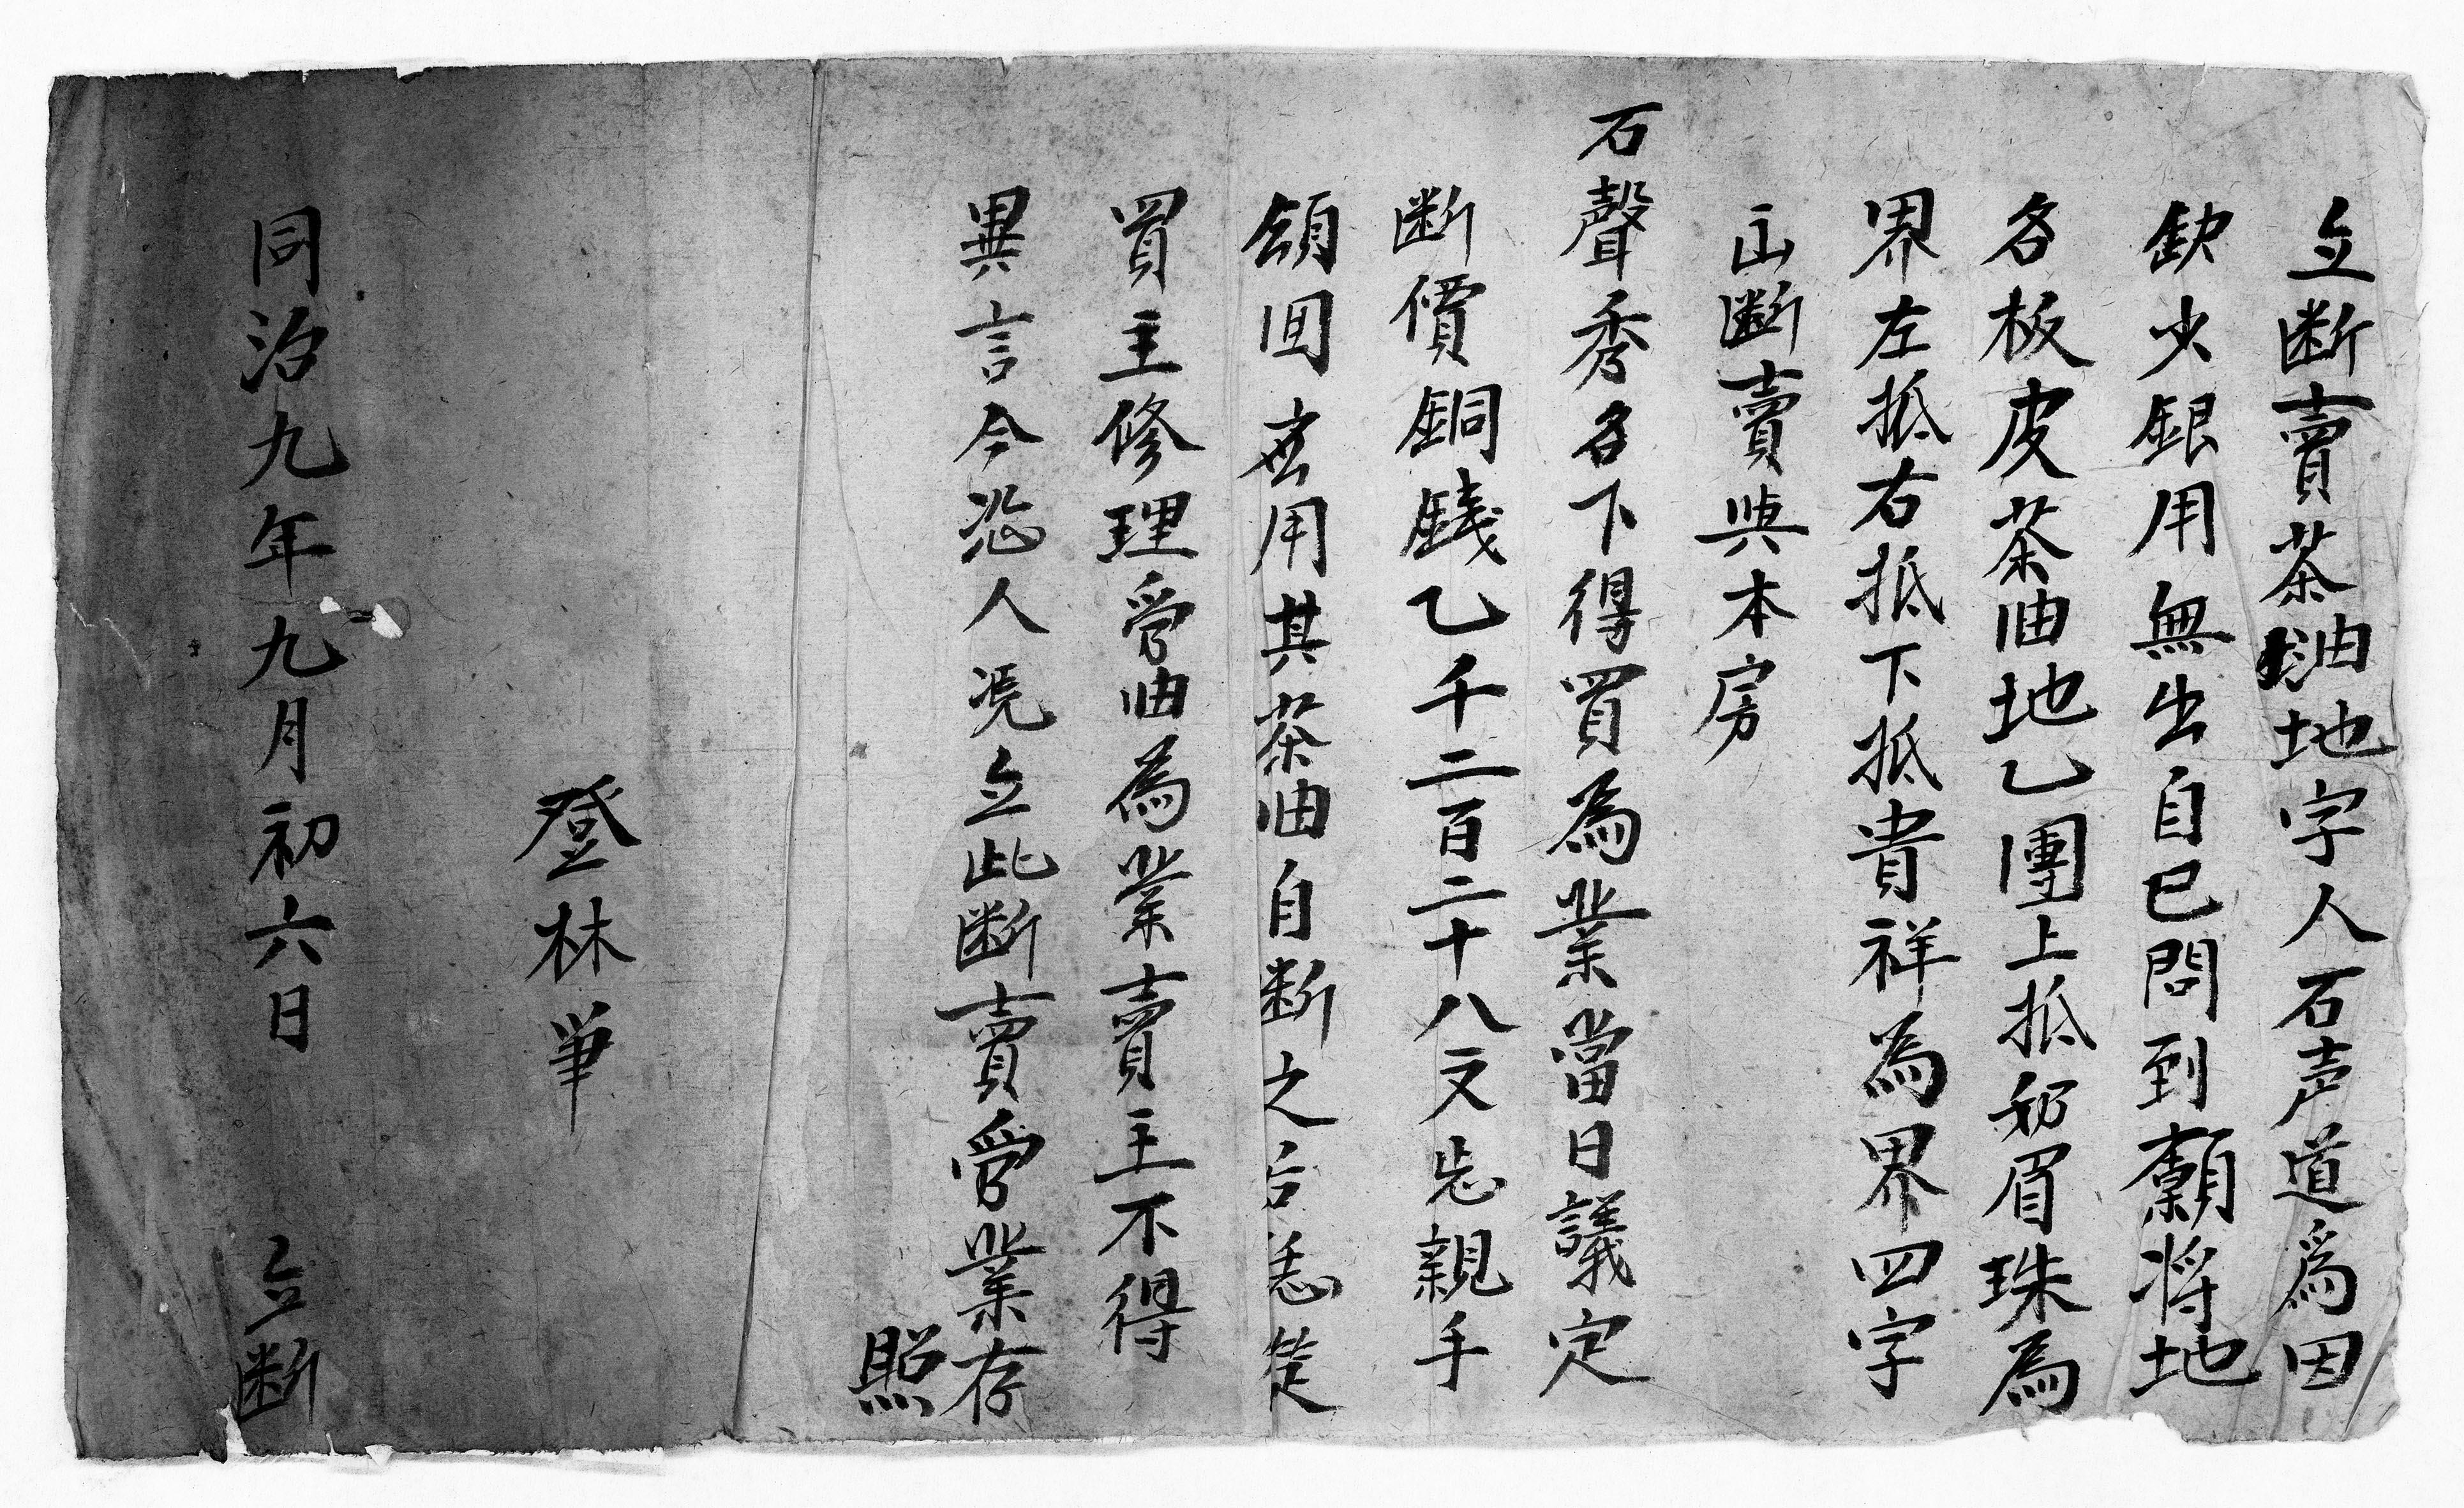 立断賣茶油地字人石声道爲因
缺少銀用無出自已問到願将地
名板皮茶油地乙團上抵 眉珠為
界左抵右抵下抵貴祥為界四字
断賣與本房
石聲秀名下得買為業當日議定
断價銅錢乙千二百二十八文 親手
領回 用其茶油自断之后恁從
買主修理管油為業賣主不得
異言今恐人凴立此断賣管業存
照
登林筆
同治九年九月初六日 立断